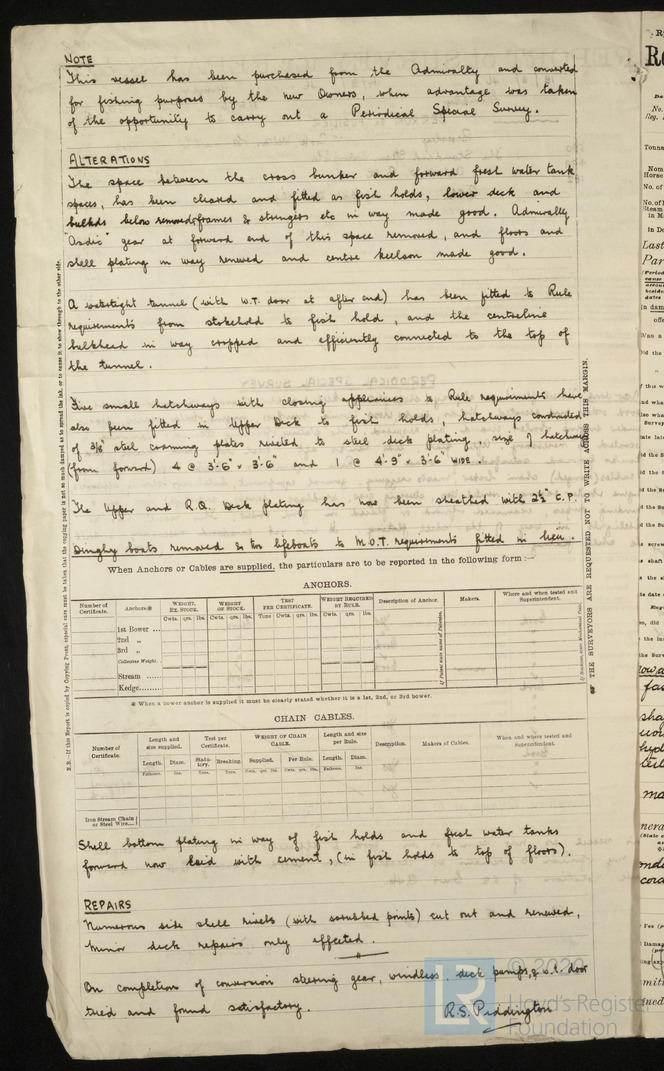 NOTE
This vessel has been purchased from the Admiralty and converted
for fishing purposes by the new Owners, when advantage was taken
of the opportunity to carry out a Periodical Special Survey.
ALTERATIONS
The space between the cross bunker and forward fresh water tank
spaces, has been cleared and fitted as fish holds, lower deck and
bulkhds below removed, frames & stringers etc in way made good. Admiralty
"Asdic" gear at forward end of this space removed, and floors and
shell plating in way renewed and centre keelson made good.
A watertight tunnel (with W.T. door at after end) has been fitted to Rule
requirements from stokehold to fish hold, and the centreline
bulkhead in way cropped and efficiently connected to the top of
the tunnel.
Five small hatchways with closing appliances to Rule requirements have
also been fitted in Upper Deck to fish holds, hatchways constructed
of 3/8" steel coaming plates riveted to steel deck plating, size of hatches
(from forward) 4 @ 3'-6" x 3'-6" and 1 @ 4'-9" x 3'-6" WIDE.
The Upper and R.Q. Deck plating has now been sheathed with 2½" C.P.
Dinghy boats removed & two lifeboats to M.O.T. requirements fitted in lieu.
When Anchors or Cables are supplied, the particulars are to be reported in the following form :—
ANCHORS.
Number of Certificate. Anchors.* WEIGHT, EX. STOCK. WEIGHT OF STOCK. TEST PER CERTIFICATE. WEIGHT REQUIRED BY RULE. Description of Anchor. Makers. Where and when tested and Superintendent.
Cwts. qrs. lbs. Cwts. qrs. lbs. Tons Cwts. qrs. lbs. Cwts. qrs. lbs.
1st Bower ...
2nd „
3rd „
Collective Weight.
Stream ......
Kedge........
* When a bower anchor is supplied it must be clearly stated whether it is a 1st, 2nd, or 3rd bower.
CHAIN CABLES.
Number of Certificate. Length and size supplied. Test per Certificate. WEIGHT OF CHAIN CABLE. Length and size per Rule. Description. Makers of Cables. When and where tested and Superintendent.
Length. Diam. Statutory. Breaking. Supplied. Per Rule. Length. Diam.
Fathoms. Ins. Tons. Tons. Cwts. qrs. lbs. Cwts. qrs. lbs. Fathoms. Ins.
Iron Stream Chain or Steel Wire...
Shell bottom plating in way of fish holds and fresh water tanks
forward now laid with cement, (in fish holds to top of floors).
REPAIRS
Numerous side shell rivets (with scrubbed points) cut out and renewed,
Minor deck repairs only effected.
On completion of conversion steering gear, windlass, deck pumps, & w.t. door
tried and found satisfactory.
R.S. Piddington
THE SURVEYORS ARE REQUESTED NOT TO WRITE ACROSS THIS MARGIN.
N.B.—If this Report is copied by Copying Press, especial care must be taken that the copying paper is not so much damped as to spread the ink, or to cause it to show through to the other side.
© 2020
Lloyd's Register
Foundation
LR